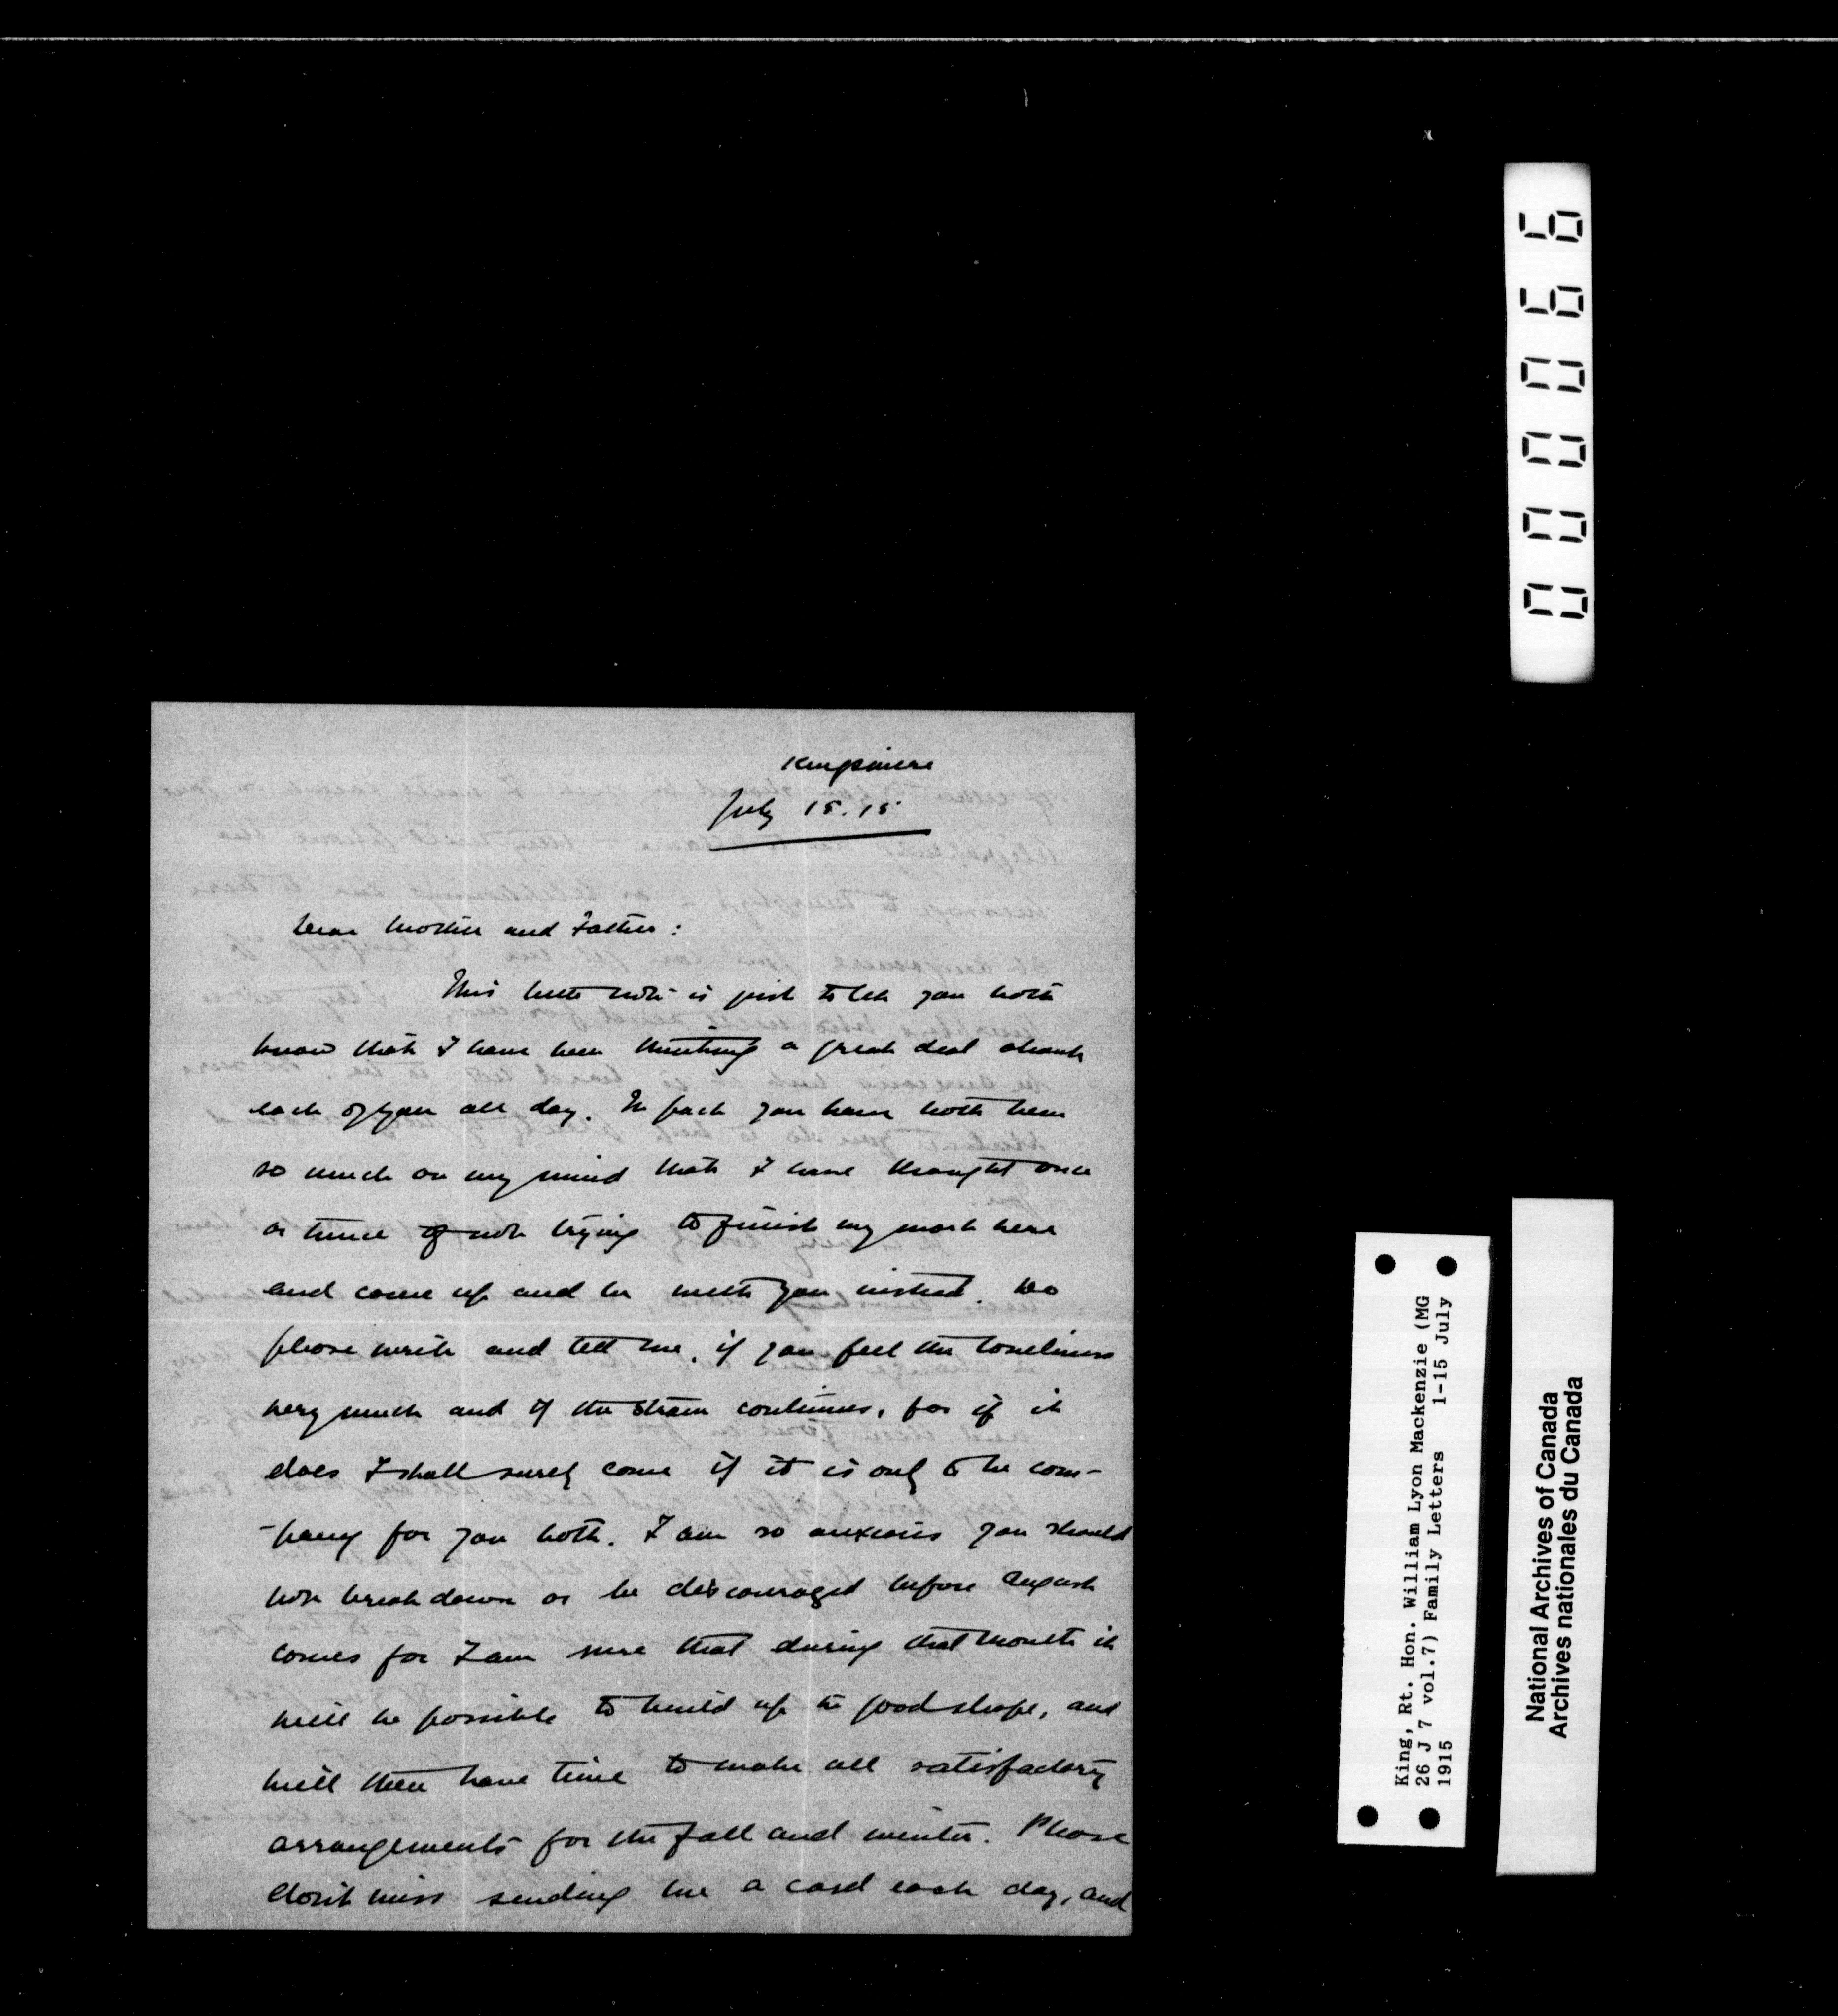 Kingsmere
July 15. 15
Dear Mother and Father:
This little note is just to let you both
know that I have been thinking a great deal about
each of you all day. In fact you have both been
so much on my mind that I have thought once
or twice of not trying to finish my work here
and come up and be with you instead. Do
please write and tell me, if you feel the loneliness
very much and if the strain continues, for if it
does I shall surely come if it is only to be com-
-pany for you both. I am so anxious you should
not break down or be discouraged before August
comes for I am sure that during that month it
will be possible to build up in good shape, and
will then have time to make all satisfactory
arrangements for the fall and winter. Please
don't miss sending me a card each day, and
000066
King, Rt. Hon. William Lyon Mackenzie (MG
26 J 7 vol.7) Family Letters 1-15 July
1915
National Archives of Canada
Archives nationales du Canada